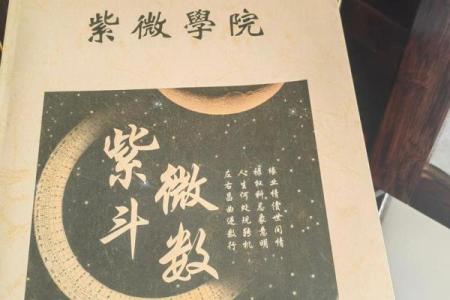 紫微學院
紫微
斗数
緣业情债世间情
禄权科忌象意明
人生何处现转机
左右昌曲逞数行